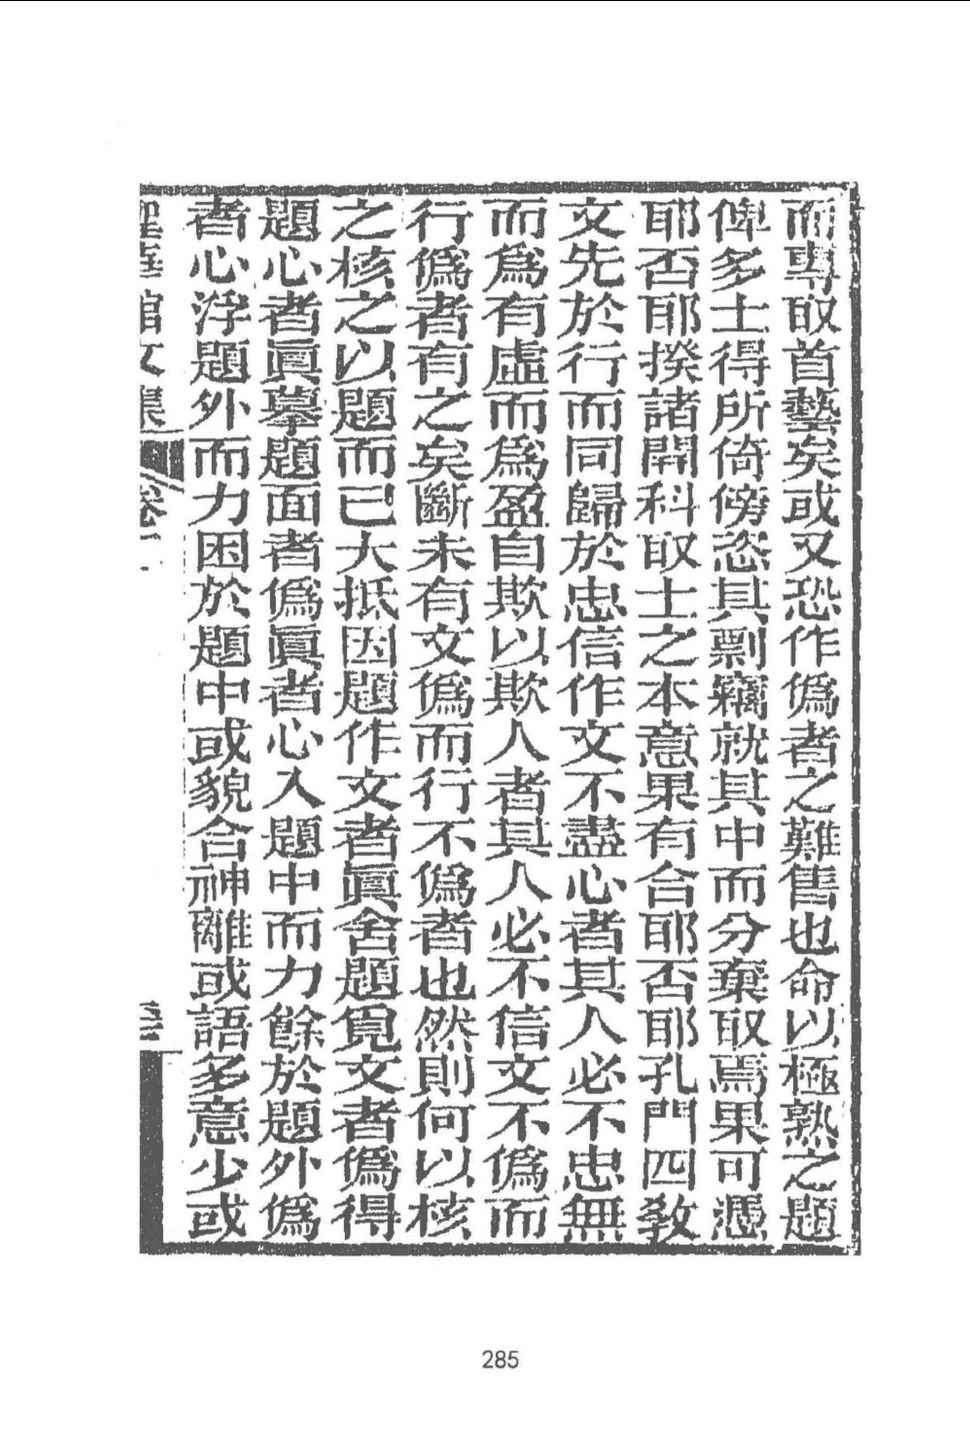 而專取首藝矣或又恐作僞者之難售也命以極熟之題
俾多士得所倚傍恣其剽竊就其中而分棄取焉果可憑
耶否耶揆諸開科取士之本意果有合耶否耶孔門四敎
文先於行而同歸於忠信作文不盡心者其人必不忠無
而爲有虛而爲盈自欺以欺人者其人必不信文不僞而
行僞者有之矣斷未有文僞而行不僞者也然則何以核
之核之以題而已大抵因題作文者眞舍題覓文者僞得
題心者眞摹題面者僞眞者心入題中而力餘於題外僞
者心浮題外而力困於題中或貌合神離或語多意少或
館文集
卷二
285